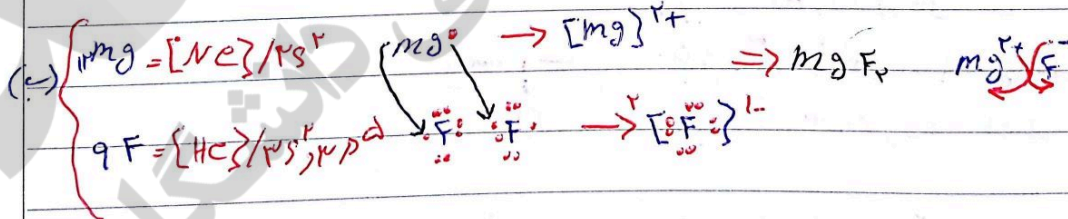 ب) ₁₂mg = [Ne]/۳s² mg → [mg]²⁺ ⇒ mgF₂ mg²⁺ F⁻
₉F = {He}/۲s², ۲p⁵ F F → ۲[F]¹⁻